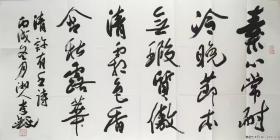 素心常耐
冷晚節本
無瑕質傲
清霜色香
含秋露華
清許有壬詩
丙戌冬月湘人